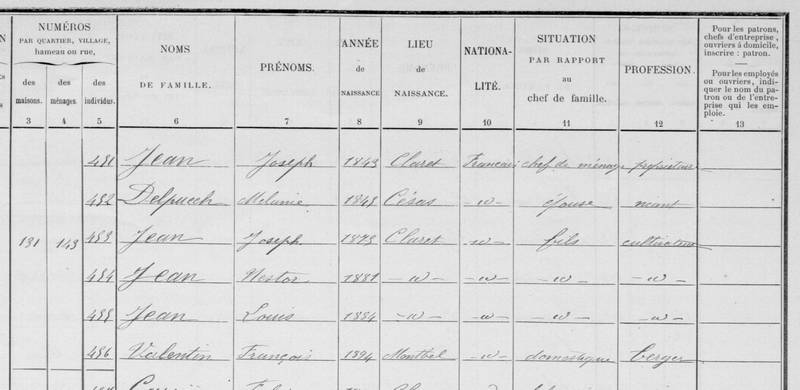 NUMÉROS
PAR QUARTIER, VILLAGE,
hameau ou rue,
des maisons. des ménages. des individus.
NOMS
DE FAMILLE.
PRÉNOMS.
ANNÉE
de
NAISSANCE
LIEU
de
NAISSANCE.
NATIONA-
LITÉ.
SITUATION
PAR RAPPORT
au
chef de famille.
PROFESSION.
Pour les patrons,
chefs d'entreprise,
ouvriers à domicile,
inscrire : patron.
Pour les employés
ou ouvriers, indi-
quer le nom du pa-
tron ou de l'entre-
prise qui les em-
ploie.
3 4 5 6 7 8 9 10 11 12 13
481 Jean Joseph 1843 Claret Français chef de ménage propriétaire
482 Delpuech Mélanie 1848 épouse néant
131 143 483 Jean Joseph 1873 Claret -id- fils cultivateur
484 Jean Nestor 1881 -id- -id- -id- -id-
485 Jean Louis 1884 -id- -id- -id- -id-
486 Valentin François 1894 Montbel -id- domestique berger